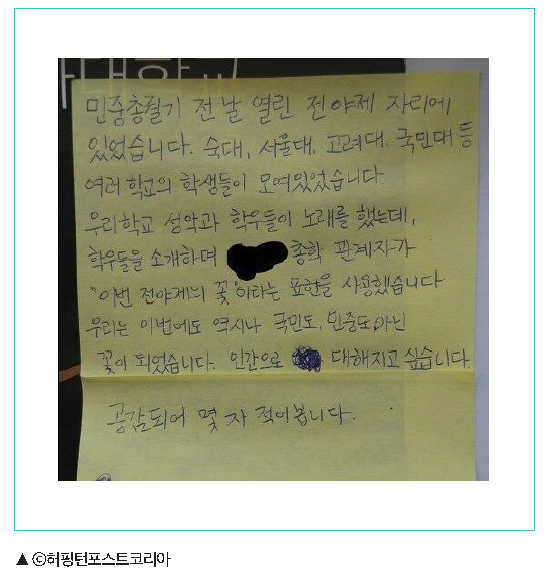 대학
민중총궐기 전날 열린 전야제 자리에
있었습니다. 숙대, 서울대, 고려대, 국민대 등
여러 학교의 학생들이 모여있었습니다.
우리학교 성악과 학우들이 노래를 했는데,
학우들을 소개하며 총학 관계자가
"이번 전야제의 꽃"이라는 표현을 사용했습니다
우리는 이번에도 역시나 국민도, 민중도 아닌
꽃이 되었습니다. 인간으로 대해지고 싶습니다.
공감되어 몇 자 적어봅니다.
▲ ⓒ허핑턴포스트코리아